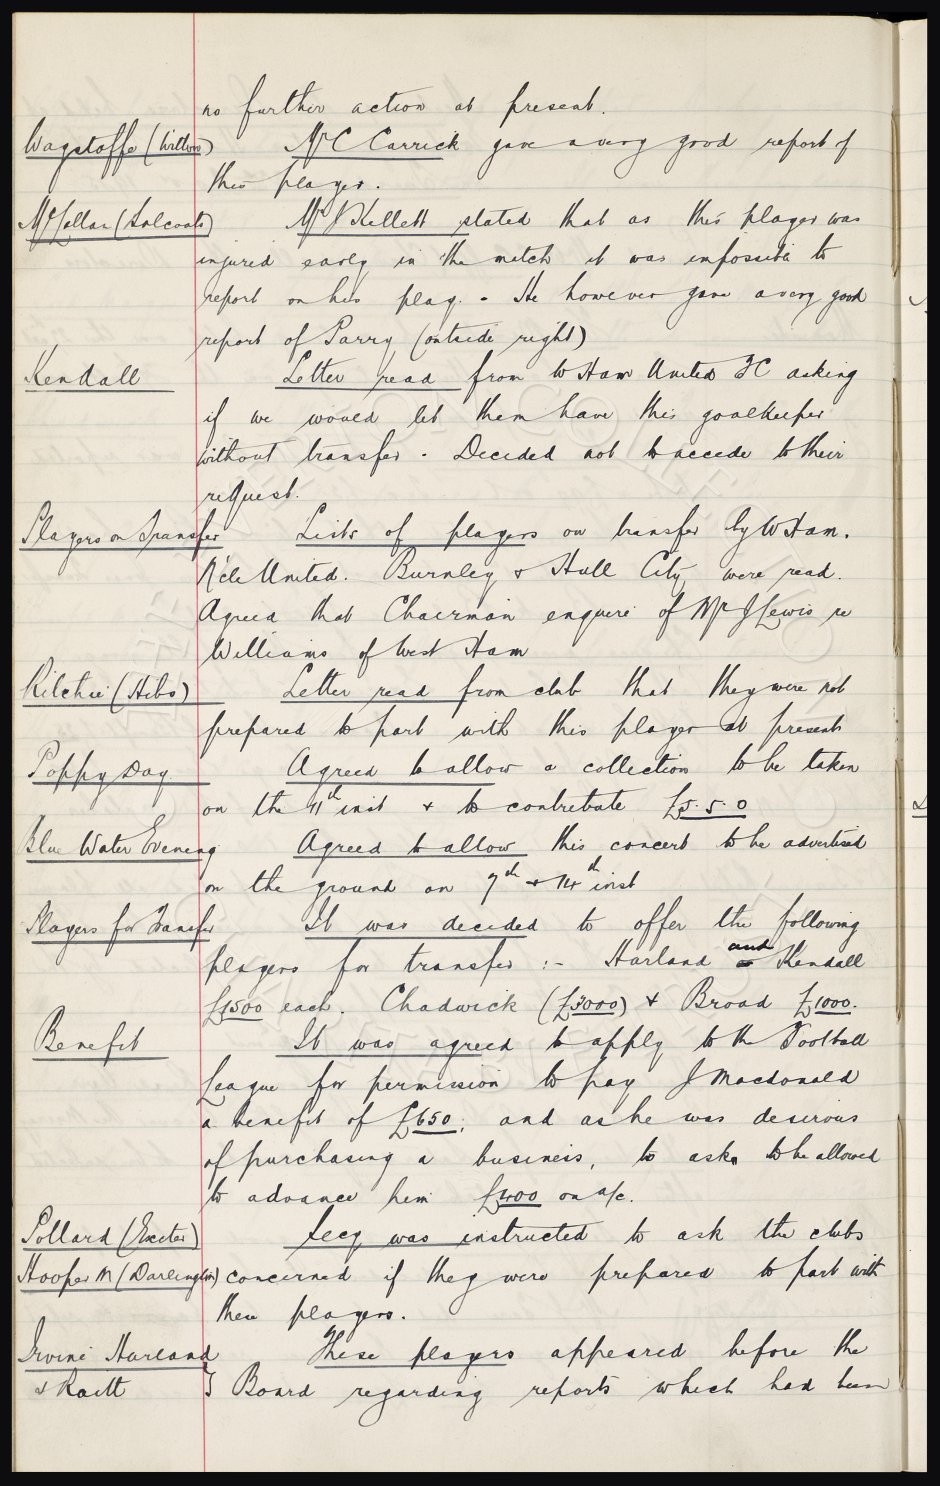 no further action at present.
Wagstaffe (Witton) Mr C Carrick gave a very good report of
this player.
McLellan (Salcoats) Mr J Kellett stated that as this player was
injured early in the match it was impossible to
report on his play. - He however gave a very good
report of Parry (outside right)
Kendall Letter read from W Ham United FC asking
if we would let them have this goalkeeper
without transfer. Decided not to accede to their
request.
Players on Transfer Lists of players on transfer by W Ham.
N'cle United. Burnley & Hull City were read.
Agreed that Chairman enquire of Mr J Lewis re
Williams of West Ham
Ritchie (Hibs) Letter read from club that they were not
prepared to part with this player at present
Poppy Day Agreed to allow a collection to be taken
on the 11th inst & to contribute £5.5.0
Blue Water Evening Agreed to allow this concert to be advertised
on the ground on 7th & 14th inst
Players for Transfer It was decided to offer the following
players for transfer :- Harland and Kendall
£1500 each. Chadwick (£3000) & Broad £1000.
Benefit It was agreed to apply to the Football
League for permission to pay J Macdonald
a benefit of £650; and as he was desirous
of purchasing a business, to ask to be allowed
to advance him £400 on a/c.
Pollard (Exeter) Secy was instructed to ask the clubs
Hooper M (Darlington) concerned if they were prepared to part with
these players.
Irvine Harland These players appeared before the
& Raitt } Board regarding reports which had been